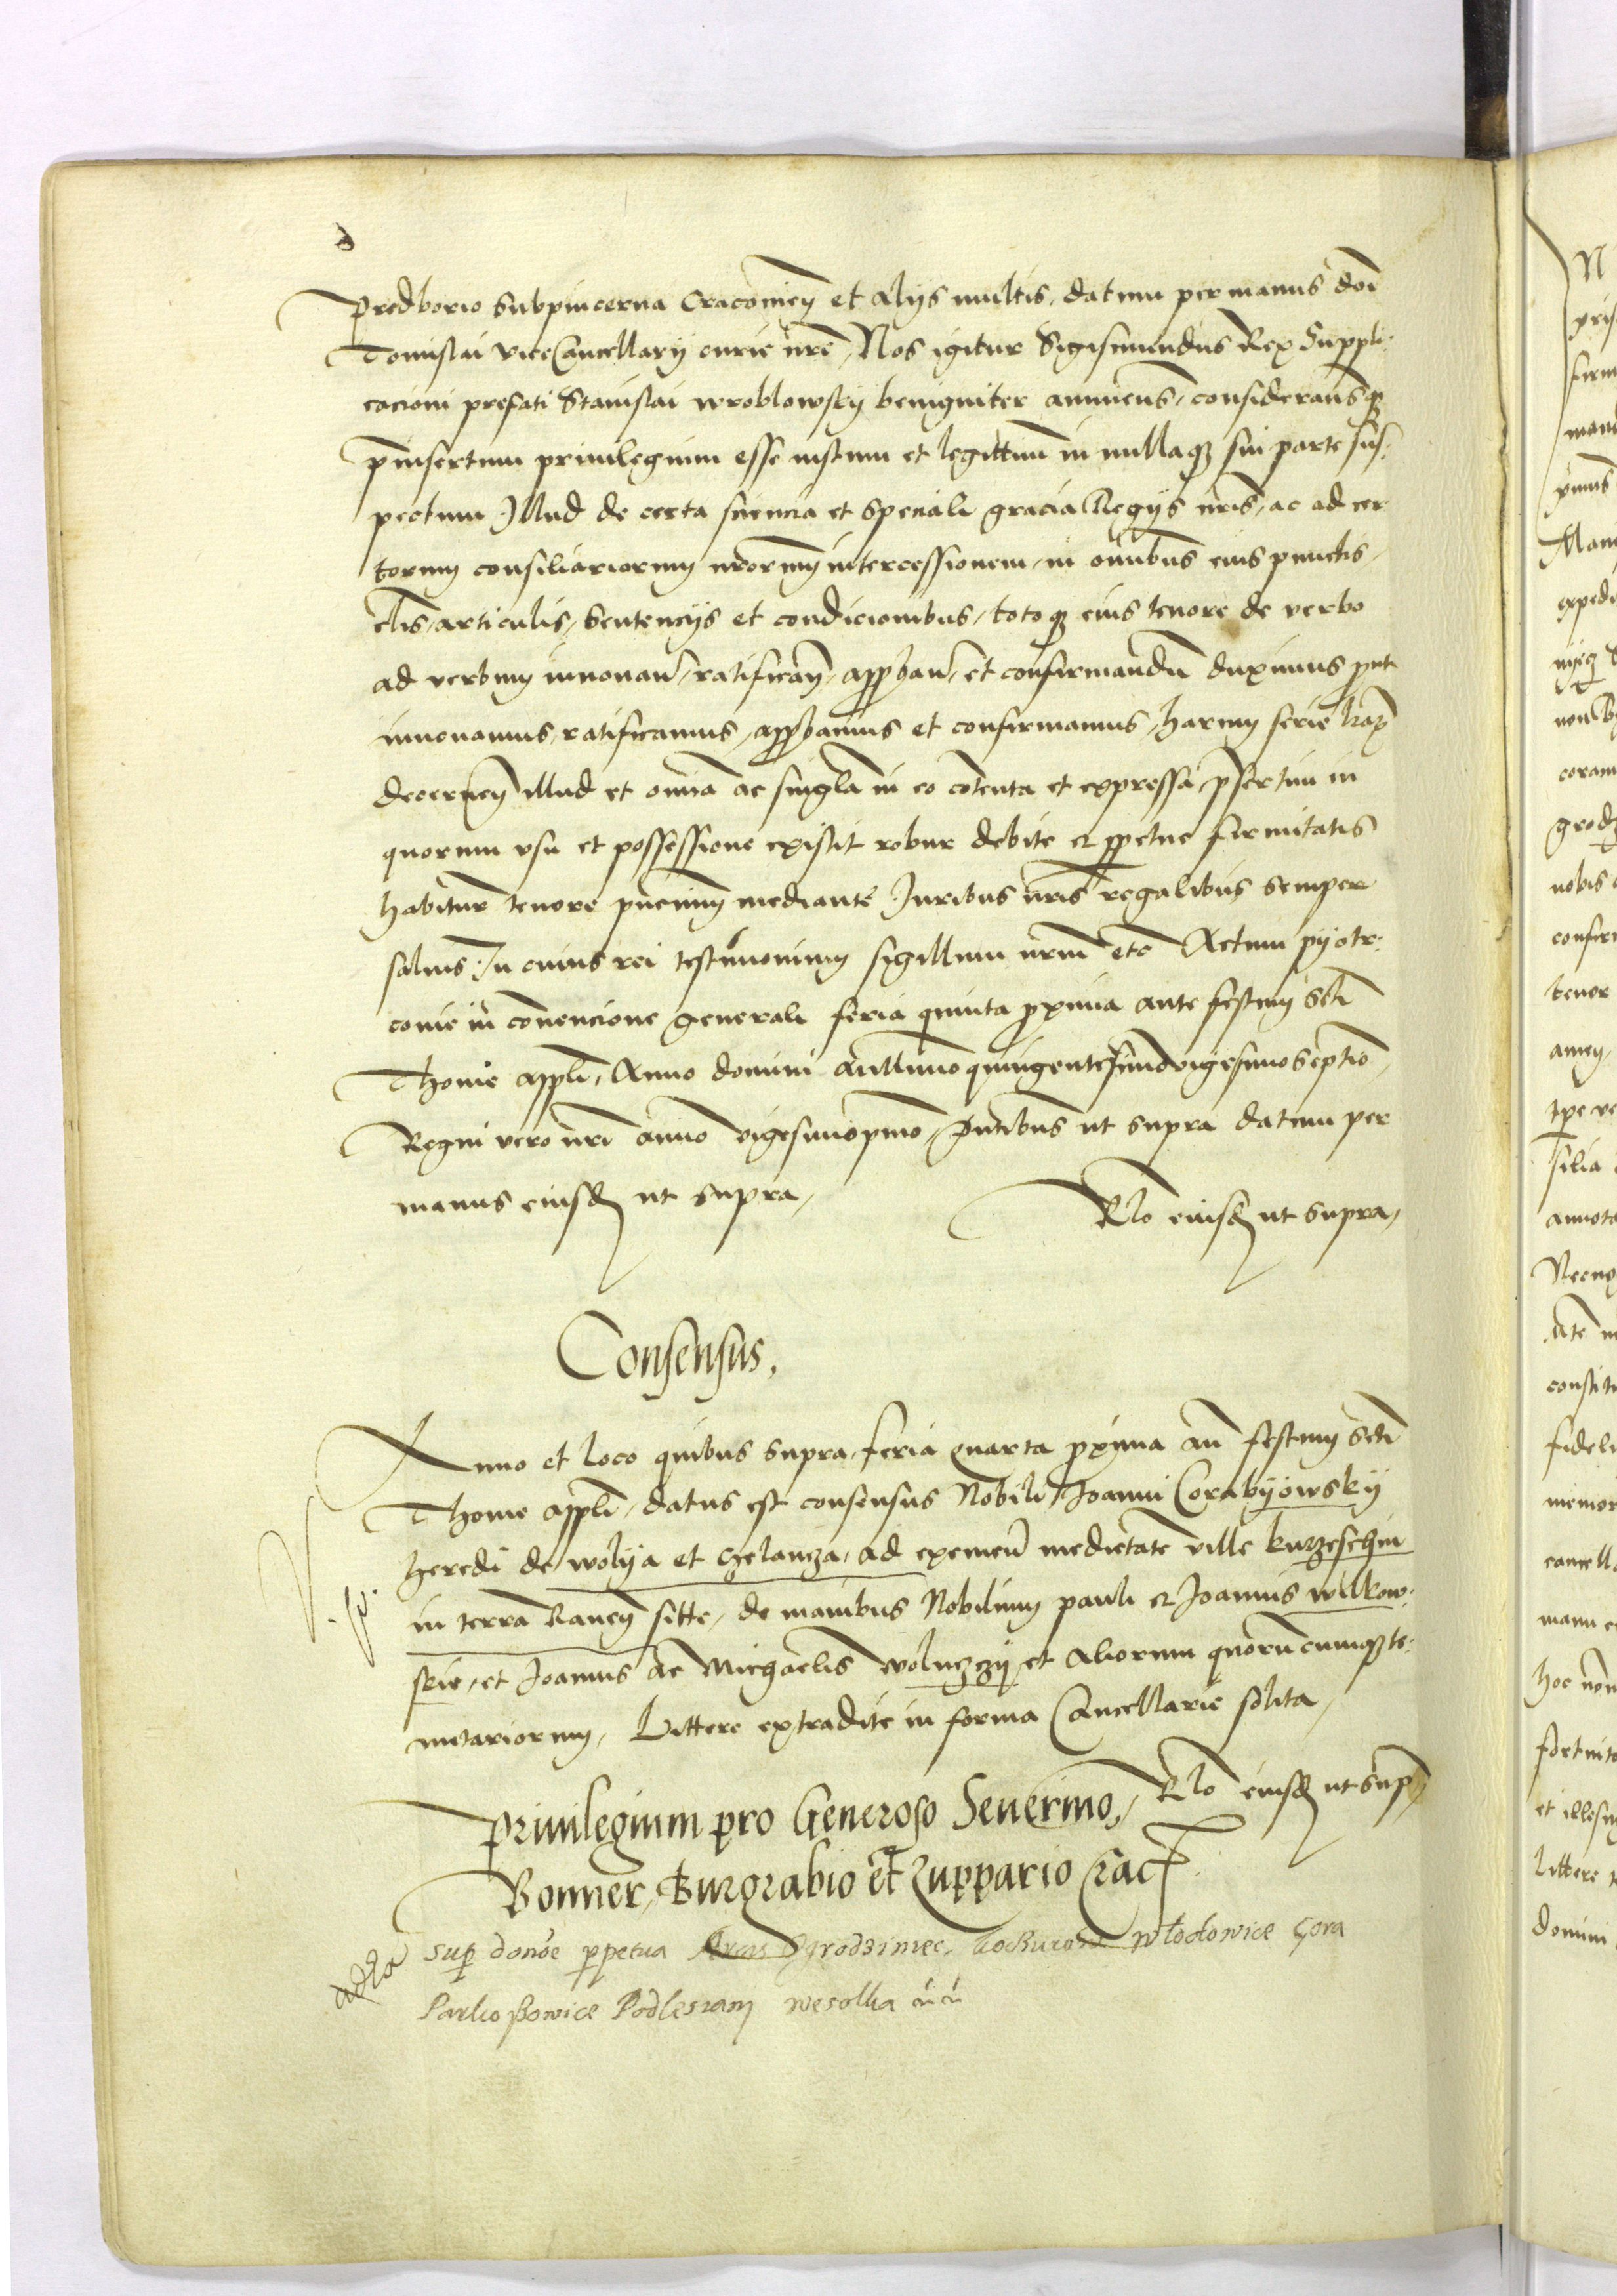 Predborio Subpincerna Cracovien̄ et alÿs multis, datum per manus dni
Tomislai viceCancellarÿ curie nr̄e, Nos igitur Sigismundus Rex Suppli-
cacioni prefati Stanislai wroblowskÿ benigniter annuens, considerans q̨
p̄insertum privilegium esse iustum et legittimū in nullaq̨ sui parte sus-
pectum Illud de certa sciencia et speciali gracia Regÿs nr̄is, ac ad cer
torum consiliariorum nr̄orum intercessionem, in om̄ibus eius punctis,
cl̄is, articulis, Sentencÿs et condicionibus, totoq̨ eius tenore de verbo
ad verbum innovan̄, ratifican̄, app̱ban̄, et confirmandū duximus p̱ut
innovamus, ratificamus, app̱bamus et confirmamus, harum serie lr̄ar̨
decernen̄ illud et om̄ia ac singl̄a in eo cōtenta et expressa p̄sertim in
quorum usu et possessione existit robur debite et p̱petue firmitatis
habitur̄ tenore pn̄cium mediante Iuribus nr̄is regalibus semper
salvis, In cuius rei testimonium sigillum nr̄um etc̄ Actum pÿotr-
covie in cōvencione generali feria quinta p̱xima ante festum Sc̄ti
Thome app̄li, Anno domini Millimo quingentesimovigesimoseptīo,
Regni vero nr̄i anno vigesimop̄mo, Pn̄tibus ut supra datum per
manus eiusd̄ ut supra,
Rl̄o eiusd̄ ut supra,
Consensus,
Anno et loco quibus supra, feria quarta p̱xima an̄ festum Sc̄ti
Thome app̄li, datus est consensus Nobili Joanni Corabÿowskÿ
heredi de wolÿa et Czelancza, ad exemen̄ medietatē ville kurzeschin
in terra Raven̄ sitte, de manibus Nobilium pauli et Joannis wilkow-
skie, et Joannis ac Michaelis woluczczÿ et aliorum quorūcumq̨ te-
nutariorum, Littere extradite in forma Cancellarie solita,
Rl̄o eiusd̄ ut supra
Privilegium pro Generoso Severino,
Bonner, Burgrabio et Zuppario Crac̄
adza
Sup̱ donōe p̱petua Arcis Ogrodzimec, Kokurow Włodowice Gora
Parkoßowice Podleszani wesolka cū